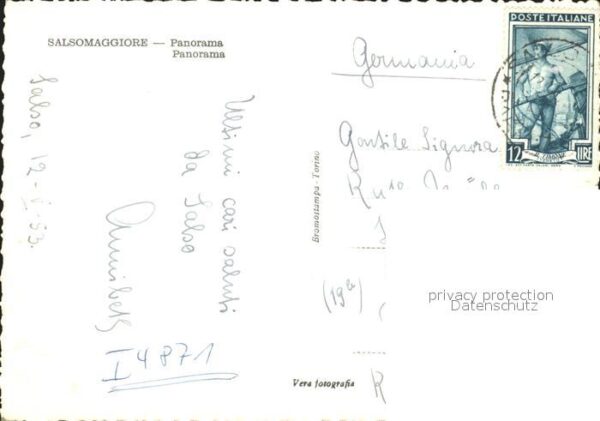 SALSOMAGGIORE — Panorama
Panorama
Salso, 12-
Ultimi cari saluti
da Salso
Annibeth
I4871
Bromostampa - Torino
Vera fotografia
POSTE ITALIANE
12 LIRE
Germania
Gentile Signora
(19a)
R
privacy protection
Datenschutz